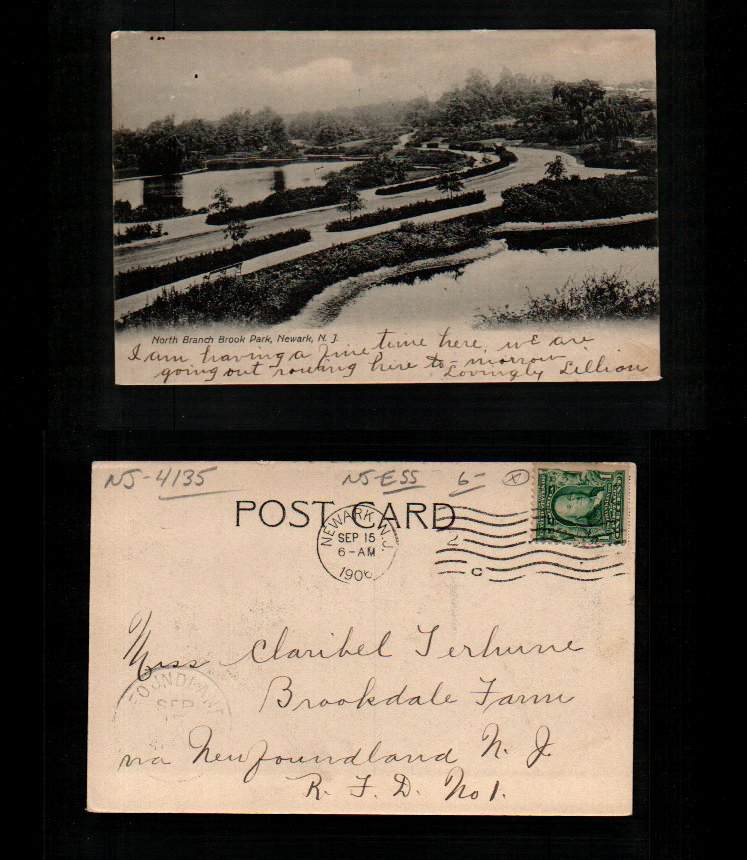 North Branch Brook Park, Newark, N. J.
I am having a fine time here, we are
going out rowing here to-morrow
Lovingly Lillian
NJ-4135 NJ-ESS 6- X
POST CARD
NEWARK, N.J.
SEP 15
6-AM
1906
2
C
Miss Claribel Terhune
Brookdale Farm
via Newfoundland N. J.
R. F. D. No 1.
SEP